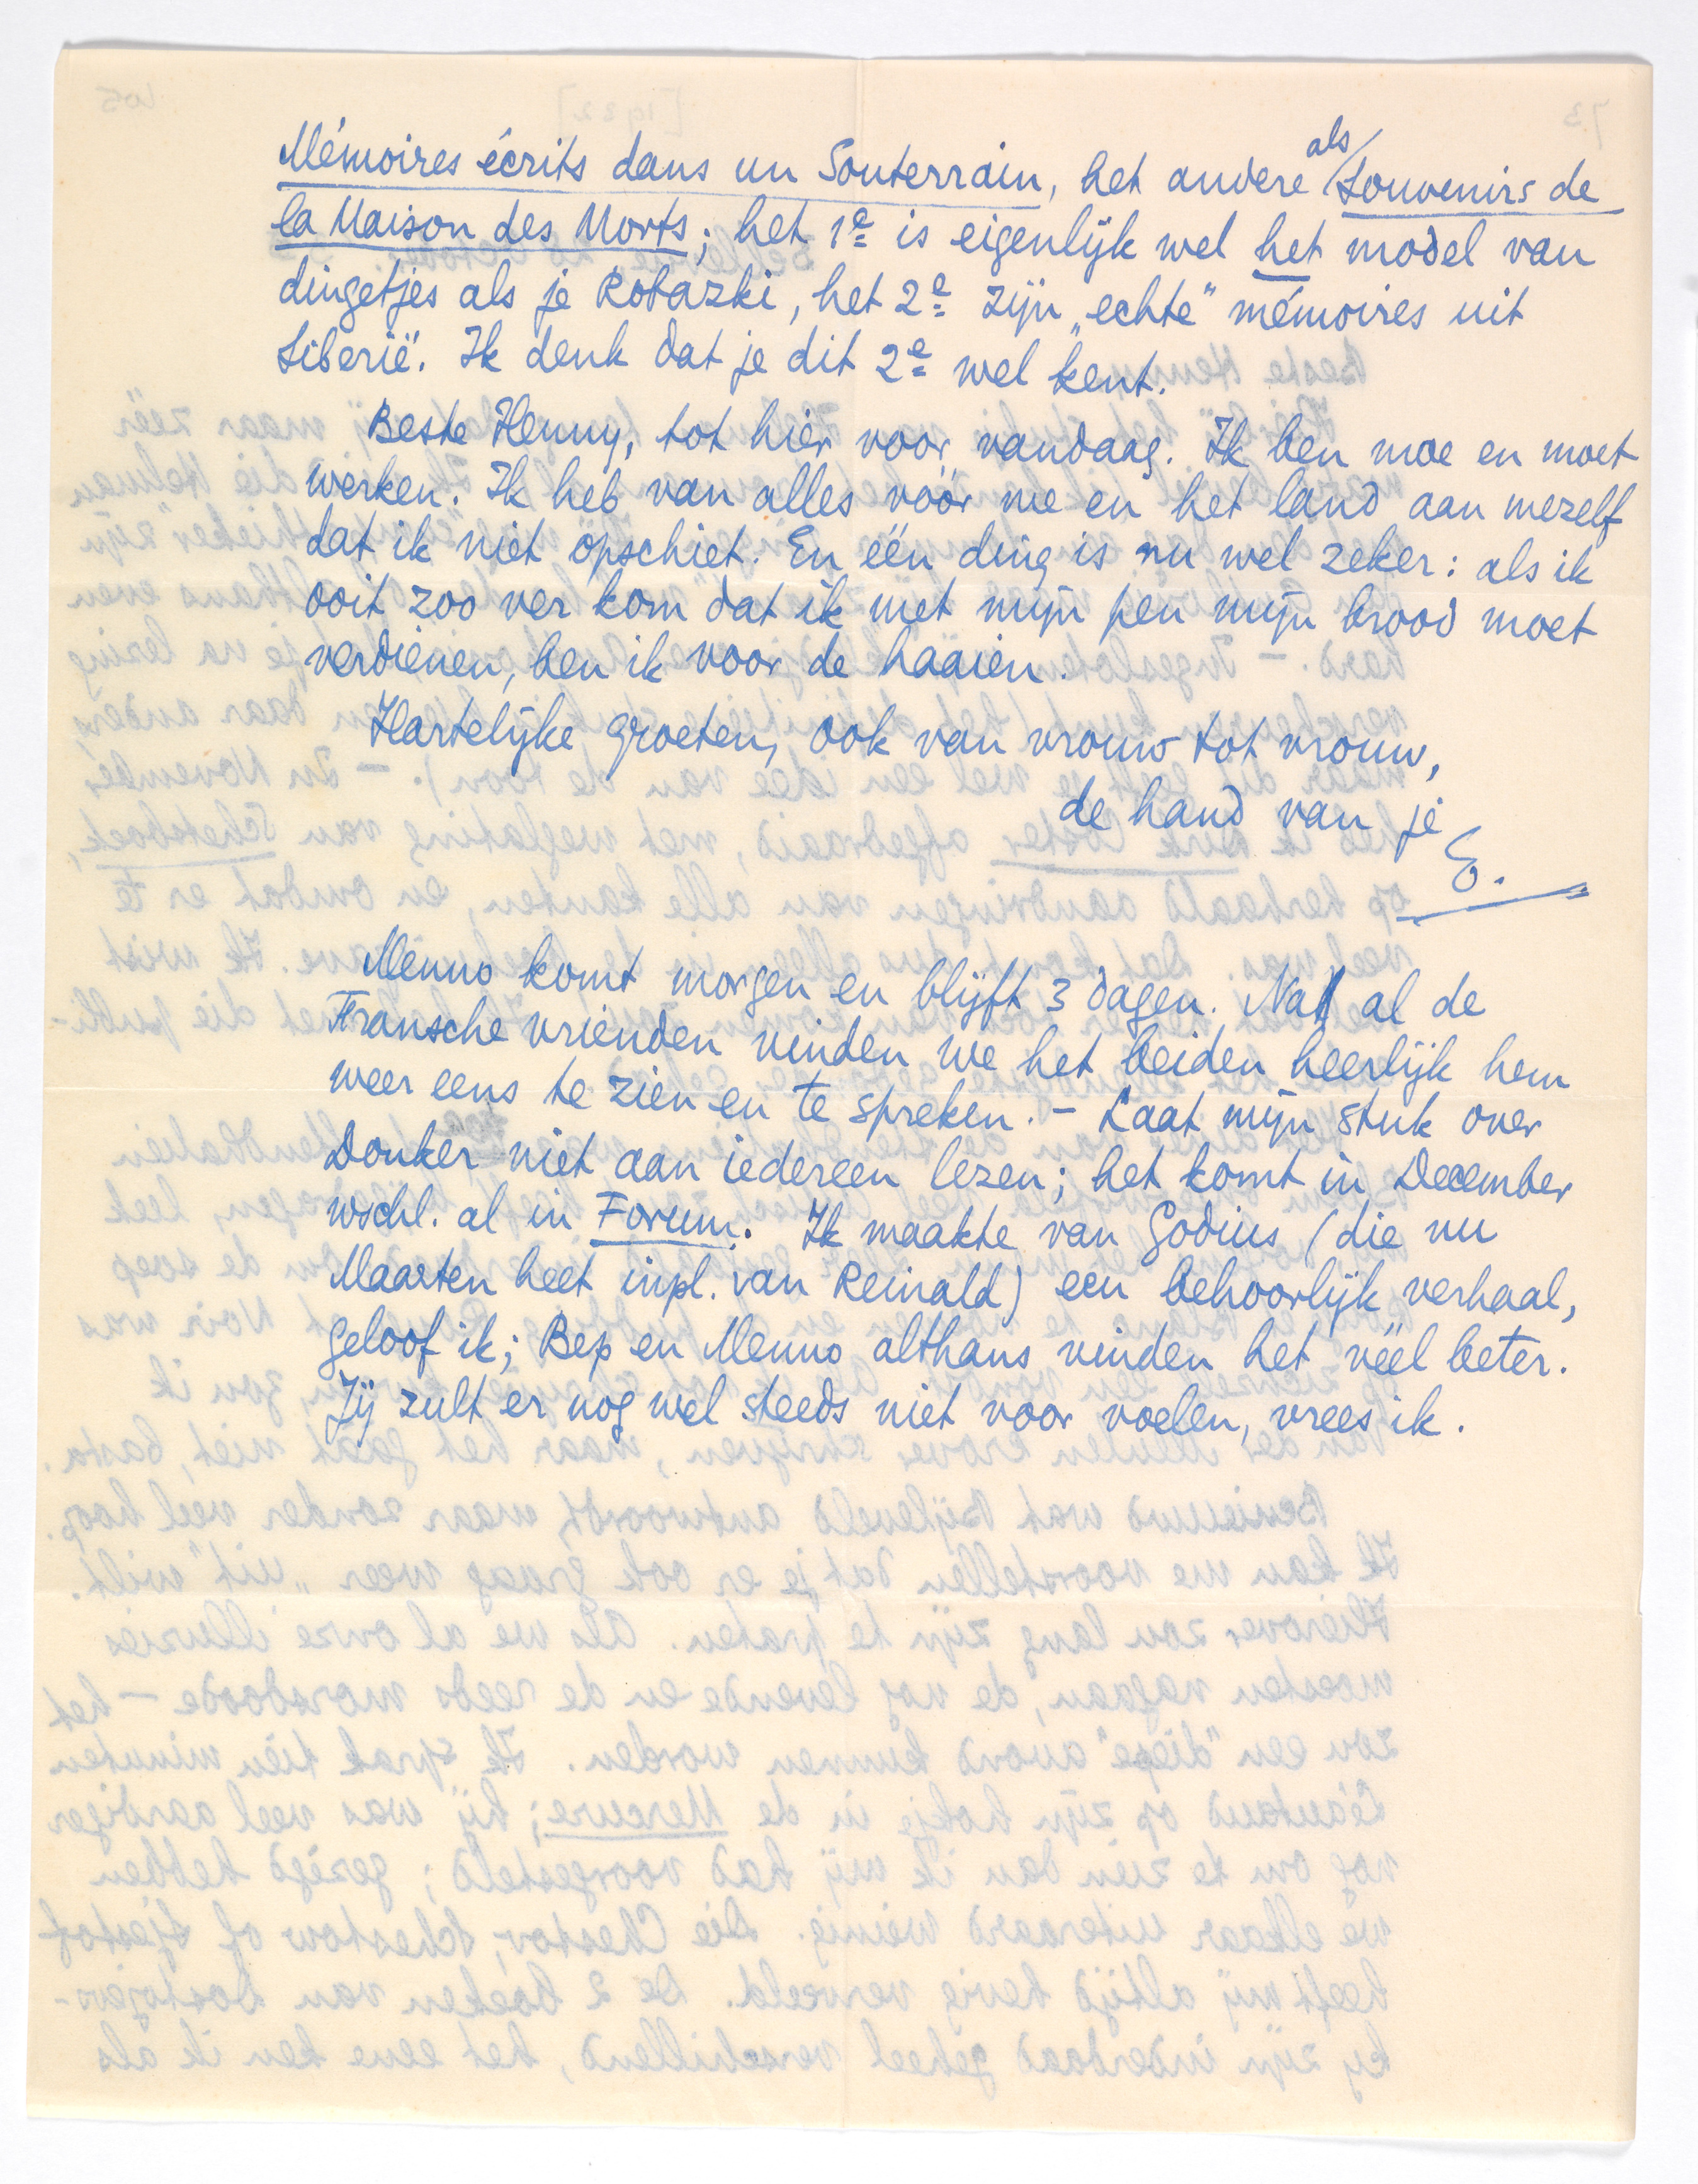 Mémoires écrits dans un Souterrain, het andere als Souvenirs de
la Maison des Morts; het 1e is eigenlijk wel het model van
dingetjes als je Robazki, het 2e zijn „echte” mémoires uit
Siberië. Ik denk dat je dit 2e wel kent.
Beste Henny, tot hier voor vandaag. Ik ben moe en moet
werken. Ik heb van alles vóór me en het land aan mezelf
dat ik niet opschiet. En één ding is nu wel zeker: als ik
ooit zoo ver kom dat ik met mijn pen mijn brood moet
verdienen, ben ik voor de haaien.
Hartelijke groeten, ook van vrouw tot vrouw,
de hand van je
E.
Menno komt morgen en blijft 3 dagen. Na al de
Fransche vrienden vinden we het beiden heerlijk hem
weer eens te zien en te spreken. – Laat mijn stuk over
Donker niet aan iedereen lezen; het komt in December
wschl. al in Forum. Ik maakte van Godius (die nu
Maarten heet inpl. van Reinald) een behoorlijk verhaal,
geloof ik; Bep en Menno althans vinden het véél beter.
Jij zult er nog wel steeds niet voor voelen, vrees ik.